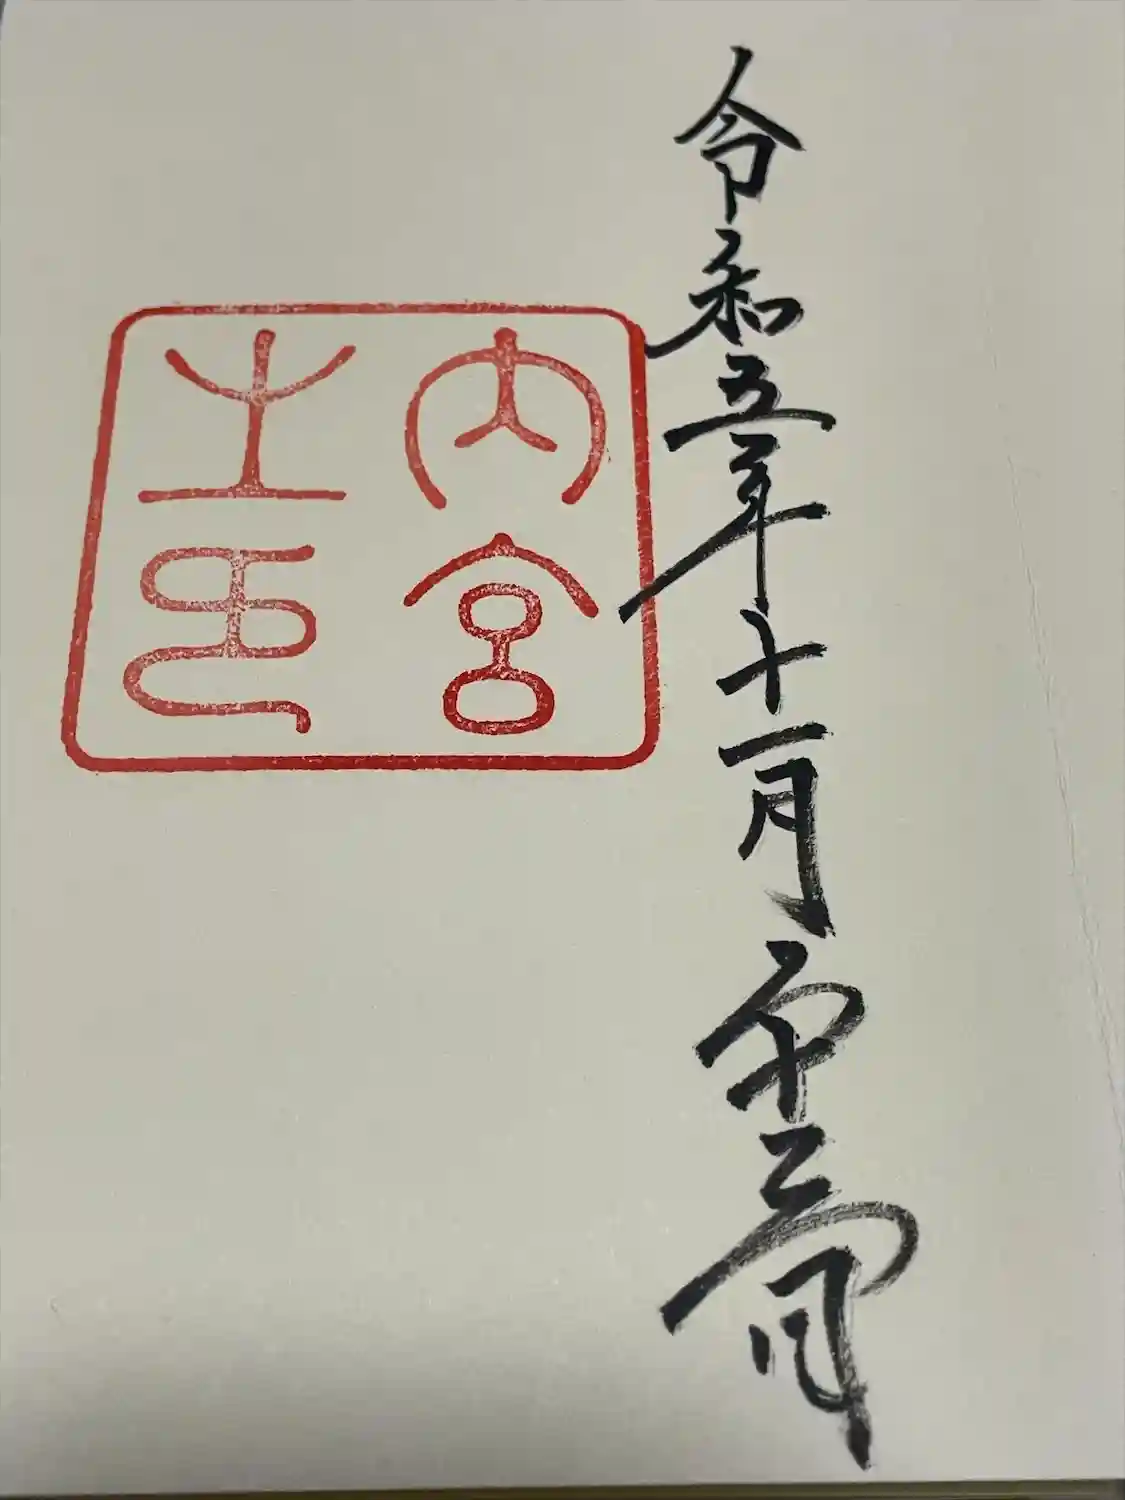 令和五年十一月二十三日
内宮
之印